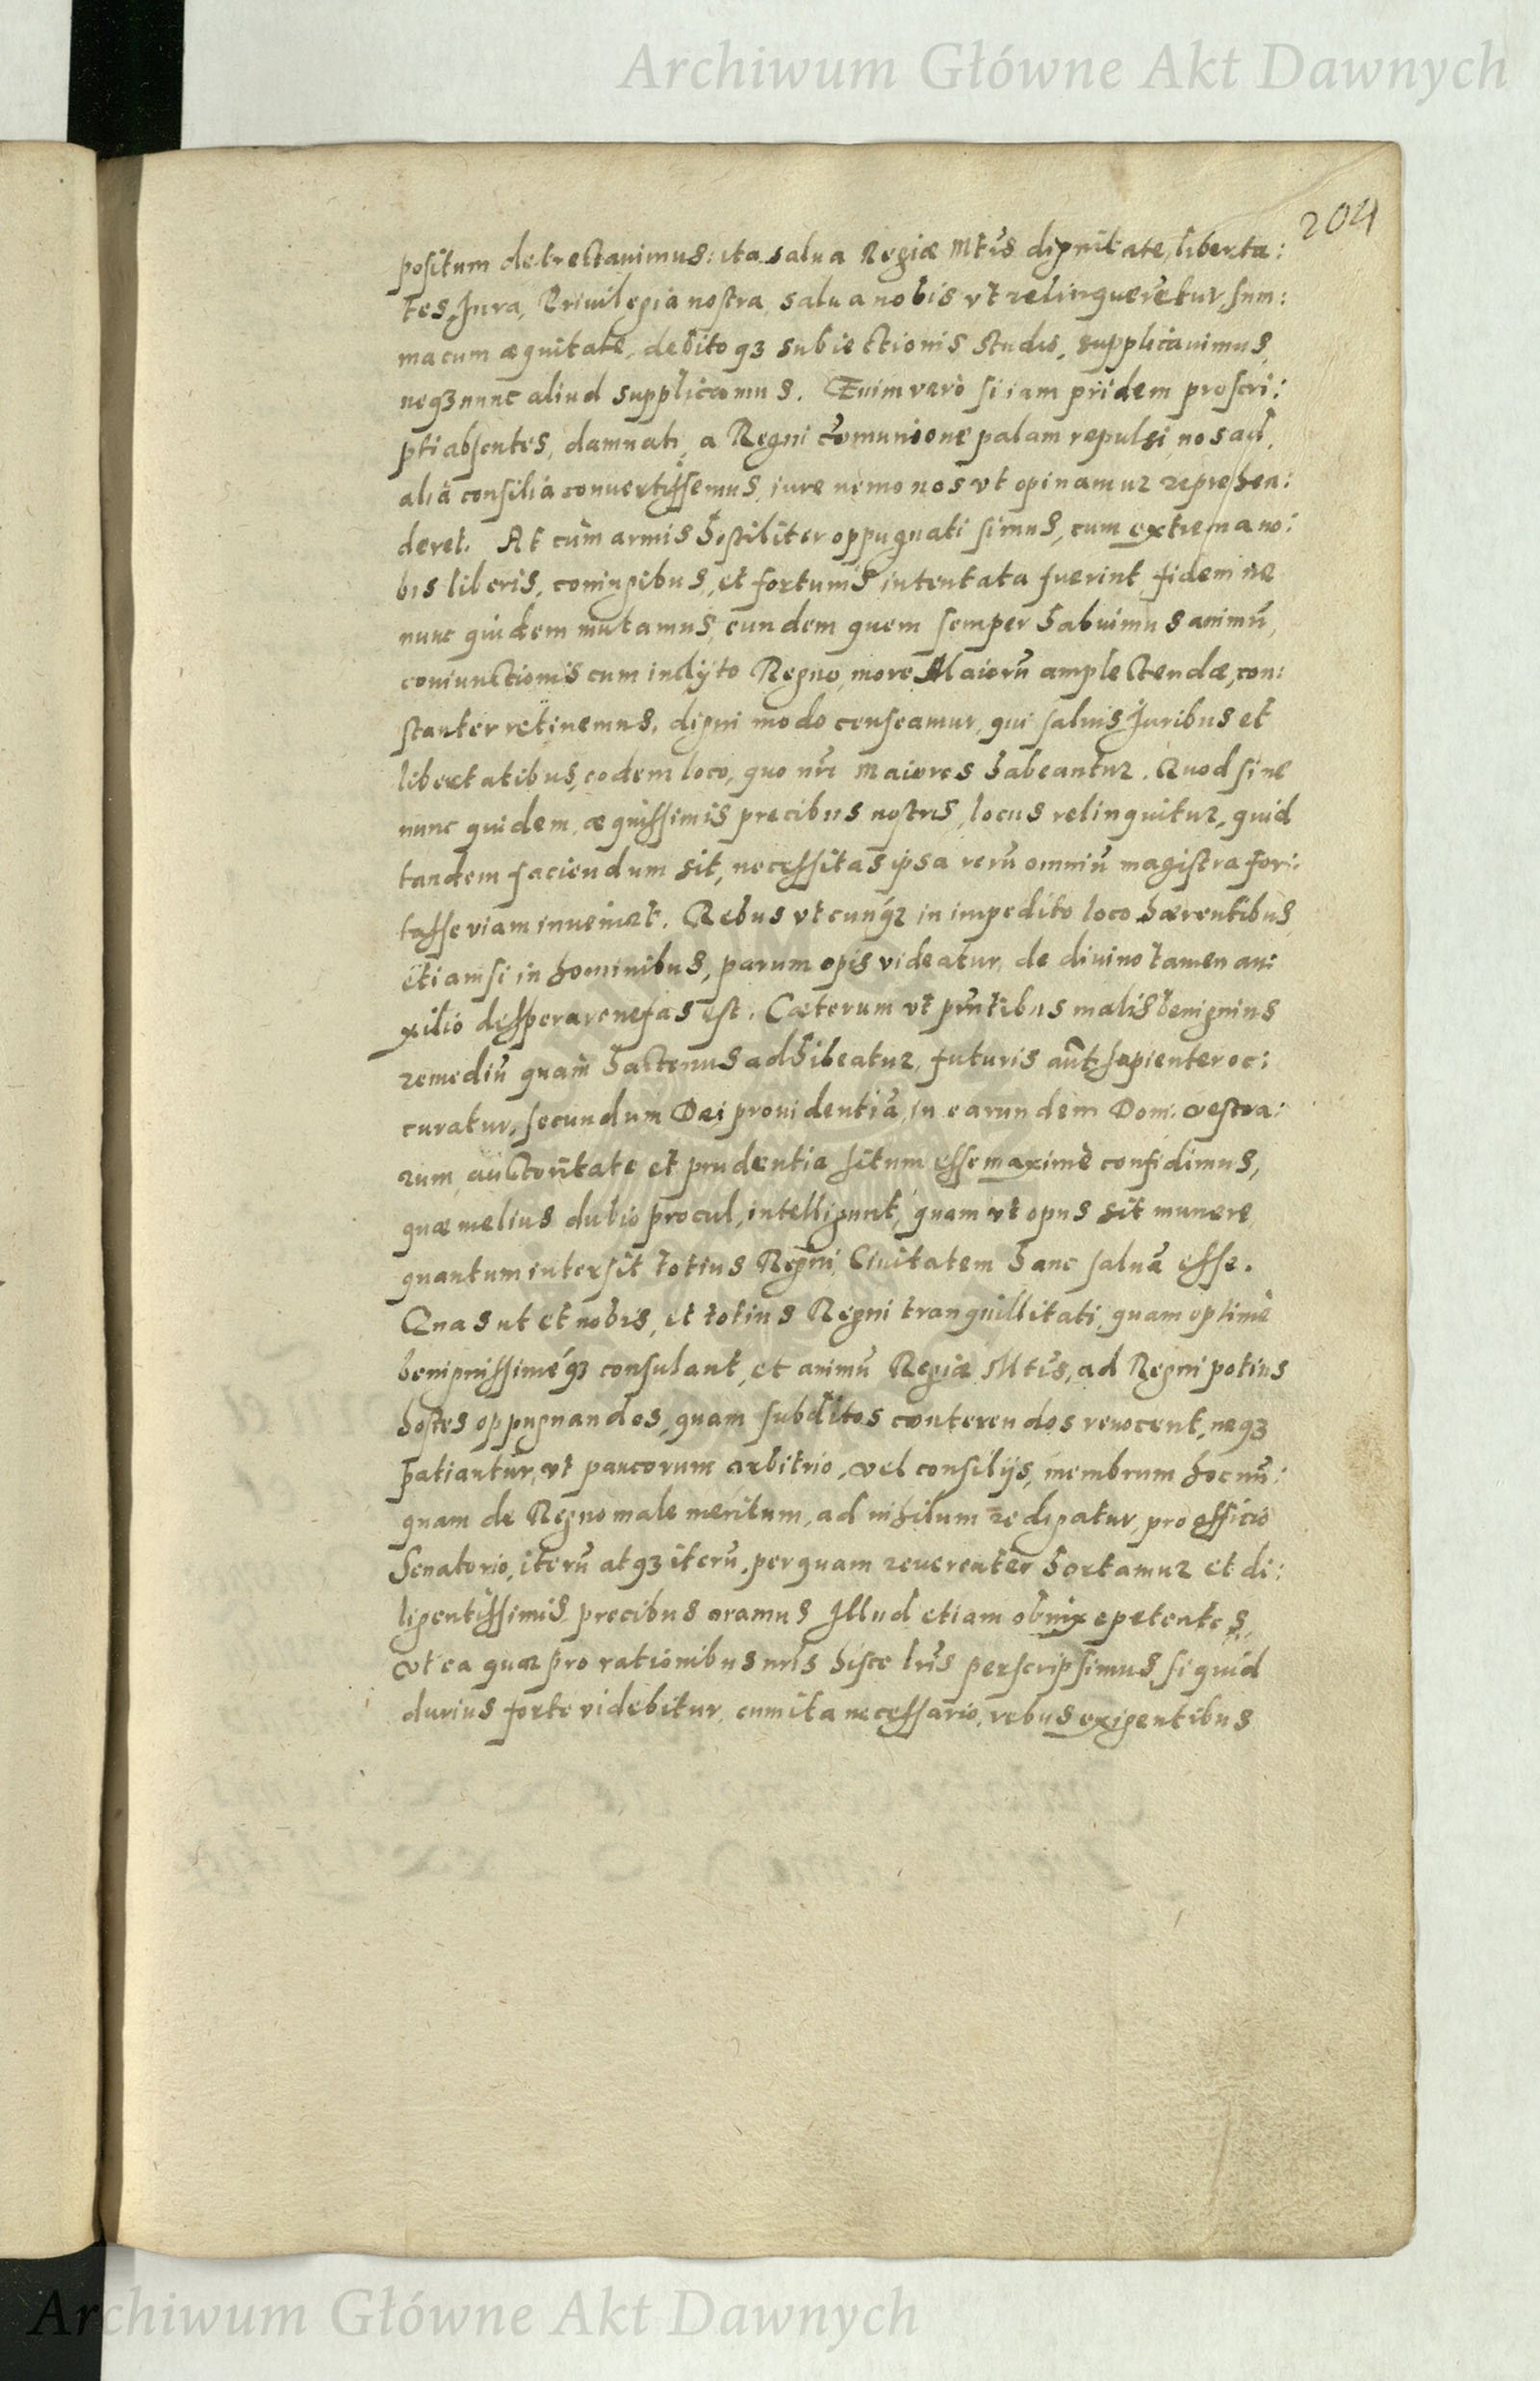 Archiwum Główne Akt Dawnych
204
positum detrectauimus: ita salua Regiæ Mtis dignitate, liberta:
tes, Jura, Priuilegia nostra, salua nobis vt relinquerẽtur, sum:
ma cum æquitate, debitoqȝ subiectionis studio, supplicauimus,
neqȝ nunc aliud supplicamus. Enimverò si iam pridem proscri:
pti absentes, damnati, a Regni cõmunione palam repulsi, nos ad
alia consilia conuertissemus, iure nemo nos vt opinamur reprehen:
deret. At cùm armis hostiliter oppugnati simus, cum extrema no:
bis liberis, coniugibus, et fortunis intentata fuerint, fidem ne
nunc quidem mutamus, eundem quem semper habuimus animũ,
coniunctionis cum inclyto Regno, more Maiorũ amplectendæ, con:
stanter retinemus, digni modo censeamur, qui saluis Juribus et
libertatibus, eodem loco, quo nr̃i Maiores habeantur. Quod si ne
nunc quidem, æquissimis precibus nostris, locus relinquitur, quid
tandem faciendum sit, necessitas ipsa rerũ omniũ magistra for:
tasse viam inueniet. Rebus vtcunqȝ in impedito loco hærentibus,
etiamsi in hominibus, parum opis videatur, de diuino tamen au:
xilio desperare nefas est. Cæterum vt pr̃ntibus malis benignius
remediũ quàm hactenus adhibeatur, futuris aũt sapienter oc:
curatur, secundum Dei prouidentiã, in earundem Dom: vestra:
rum, auctoritate et prudentia situm esse maximè confidimus,
quæ melius dubio procul, intelligunt, quam vt opus sit munere,
quantum intersit totius Regni, Ciuitatem hanc saluã esse.
Quas ut et nobis, et totius Regni tranquillitati, quam optimè
benignissiméqȝ consulant, et animũ Regiæ Mtis, ad Regni potius
hostes oppugnandos, quam subditos conterendos reuocent, neqȝ
patiantur, vt paucorum arbitrio, vel consilijs, membrum hoc nũ:
quam de Regno male meritum, ad nihilum redigatur, pro officio
Senatorio, iterũ atqȝ iterũ, perquam reuerenter hortamur et di:
ligentissimis precibus oramus. Illud etiam obnixe petentes,
vt ea quæ pro rationibus nr̃is hisce lr̃is perscripsimus, si quid
durius forte videbitur, cum ita necessario, rebus exigentibus
Archiwum Główne Akt Dawnych